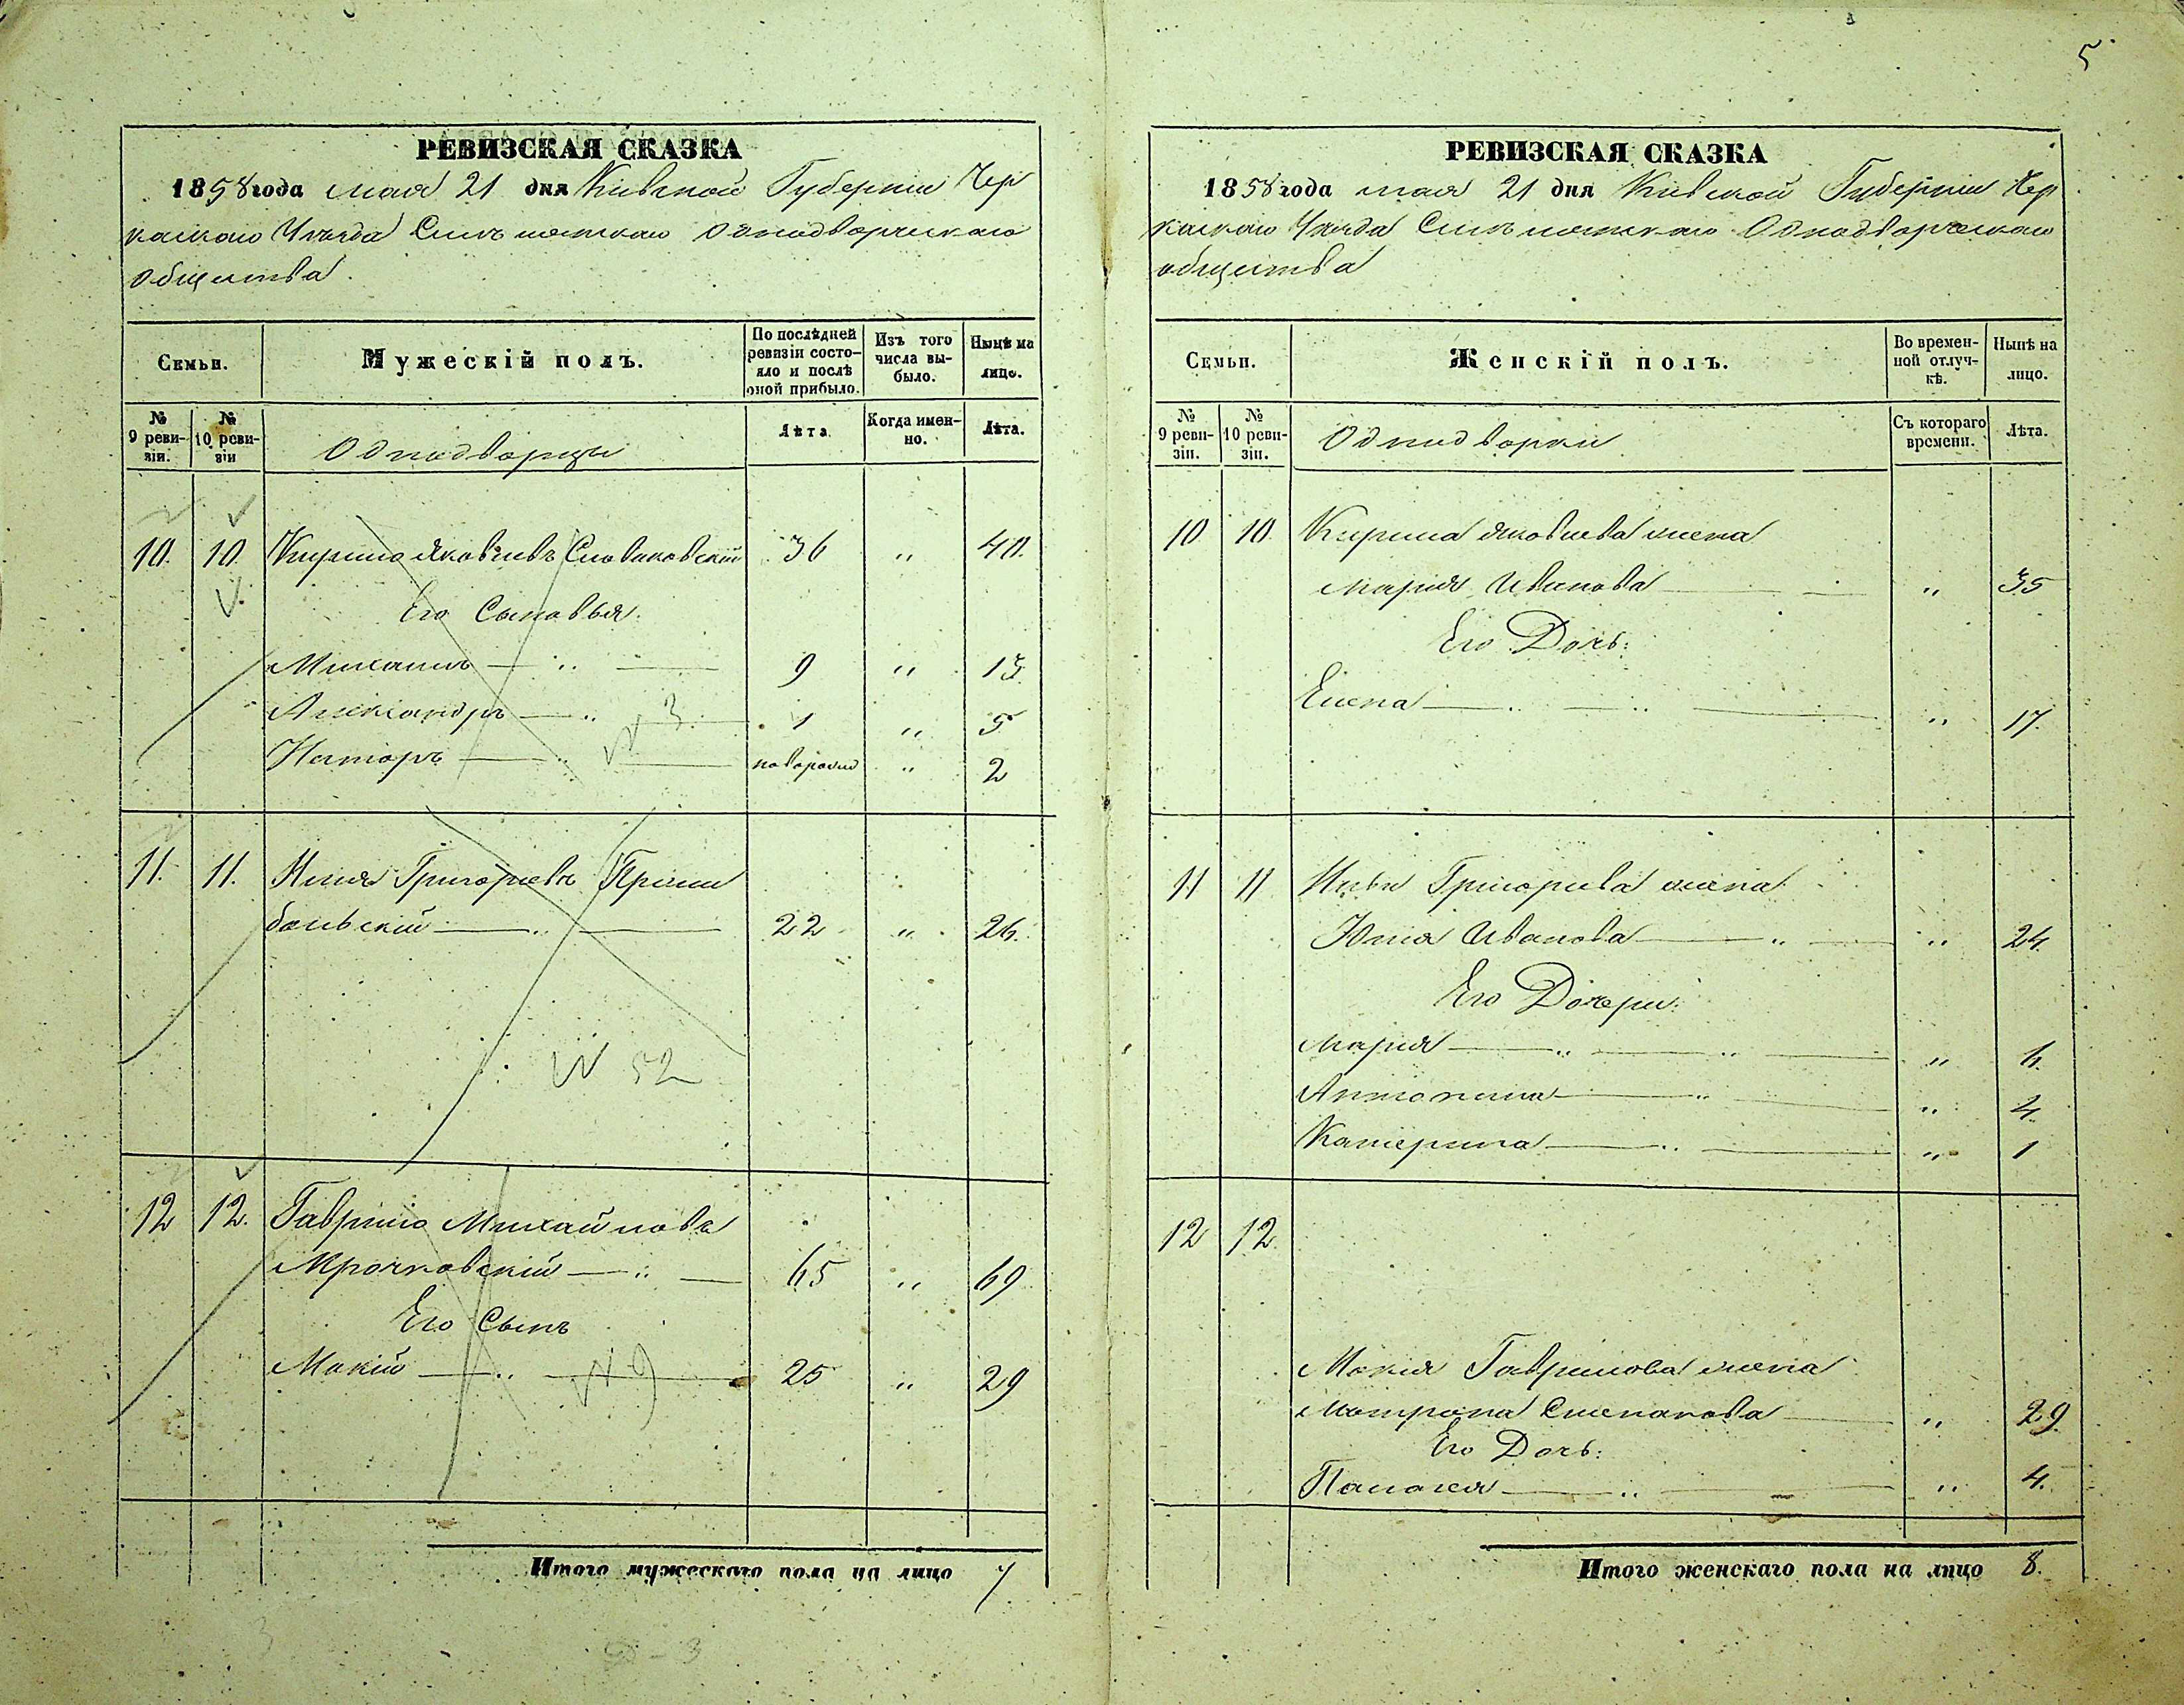 5
РЕВИЗСКАЯ СКАЗКА
1858 года мая 21 дня Кіевской Губерніи Чер
каскаго Уѣзда Однодворческаго
общества.
Семьи.
Мужескій полъ.
По послѣдней ревизіи состояло и послѣ оной прибыло.
Изъ того числа выбыло.
Нынѣ на лицо.
№ 9 ревизіи.
№ 10 ревизіи
Однодворцы
Лѣта
Когда именно.
Лѣта.
10. 10. Кирило Яковлевъ 36 „ 40.
Его Сыновья.
Михаилъ — „ — 9 „ 13.
Александръ — „ — 1 „ 5
— „ — новорожд „ 2
N 3.
11. 11. Илья Григорьевъ
больскій — „ — 22 „ 26.
N 52
12 12. Гаврило Михайловъ
Мрочковскій — „ — 65 „ 69
Его Сынъ
Мокій — „ — 25 „ 29
N 9
Итого мужескаго пола на лицо 7
3
РЕВИЗСКАЯ СКАЗКА
1858 года мая 21 дня Кіевской Губерніи Чер
каскаго Уѣзда Однодворческаго
общества
Семьи.
Женскій полъ.
Во временной отлучкѣ.
Нынѣ на лицо.
№ 9 ревизіи.
№ 10 ревизіи.
Однодворки
Съ котораго времени.
Лѣта.
10 10. Кирила Яковлева жена
Марія Иванова — — „ 35
Его Дочь:
Елена — „ — „ — „ 17.
11 11 Ильи Григорьева жена
Юлія Иванова — „ — „ 24.
Его Дочери:
Марія — „ — „ — „ 6.
Антонина — „ — „ 4.
Катерина — „ — „ 1
12 12.
Мокія Гаврилова жена
Мотрона Степанова — „ 29.
Его Дочь:
Палагея — „ — „ 4.
Итого женскаго пола на лицо 8.